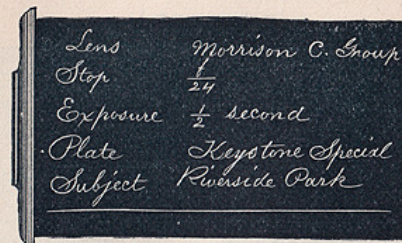 Lens Morrison C. Group
Stop f/24
Exposure 1/2 second
Plate Keystone Special
Subject Riverside Park